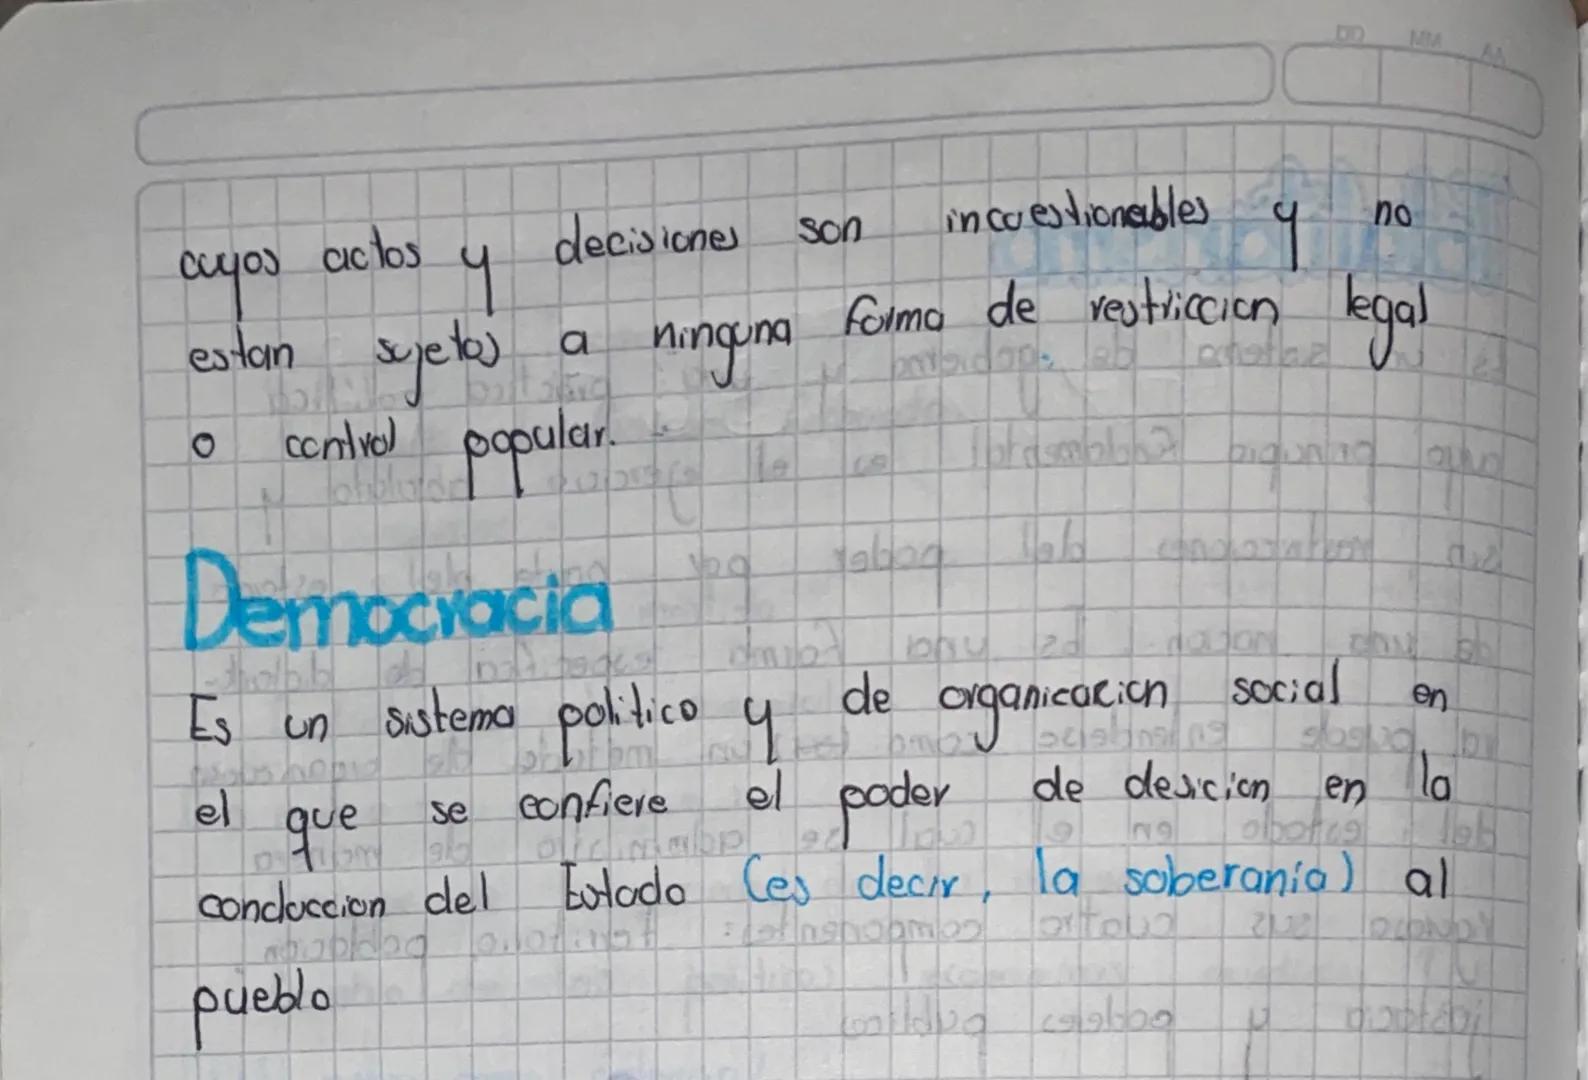 DD MM AA
cuyos actos y decisiones son incuestionables y no
estan sujetos a ninguna forma de restriccion legal
o control popular.
Democracia
Es un sistema politico y de organicacion social en
el que se confiere el poder de desicion en la
conduccion del Estado (es decir, la soberanía) al
pueblo